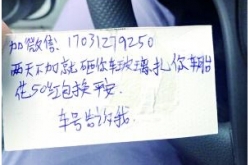 加微信: 17031279250
两天不加就砸你车玻璃扎你车胎
花50红包换平安
车号告诉我.